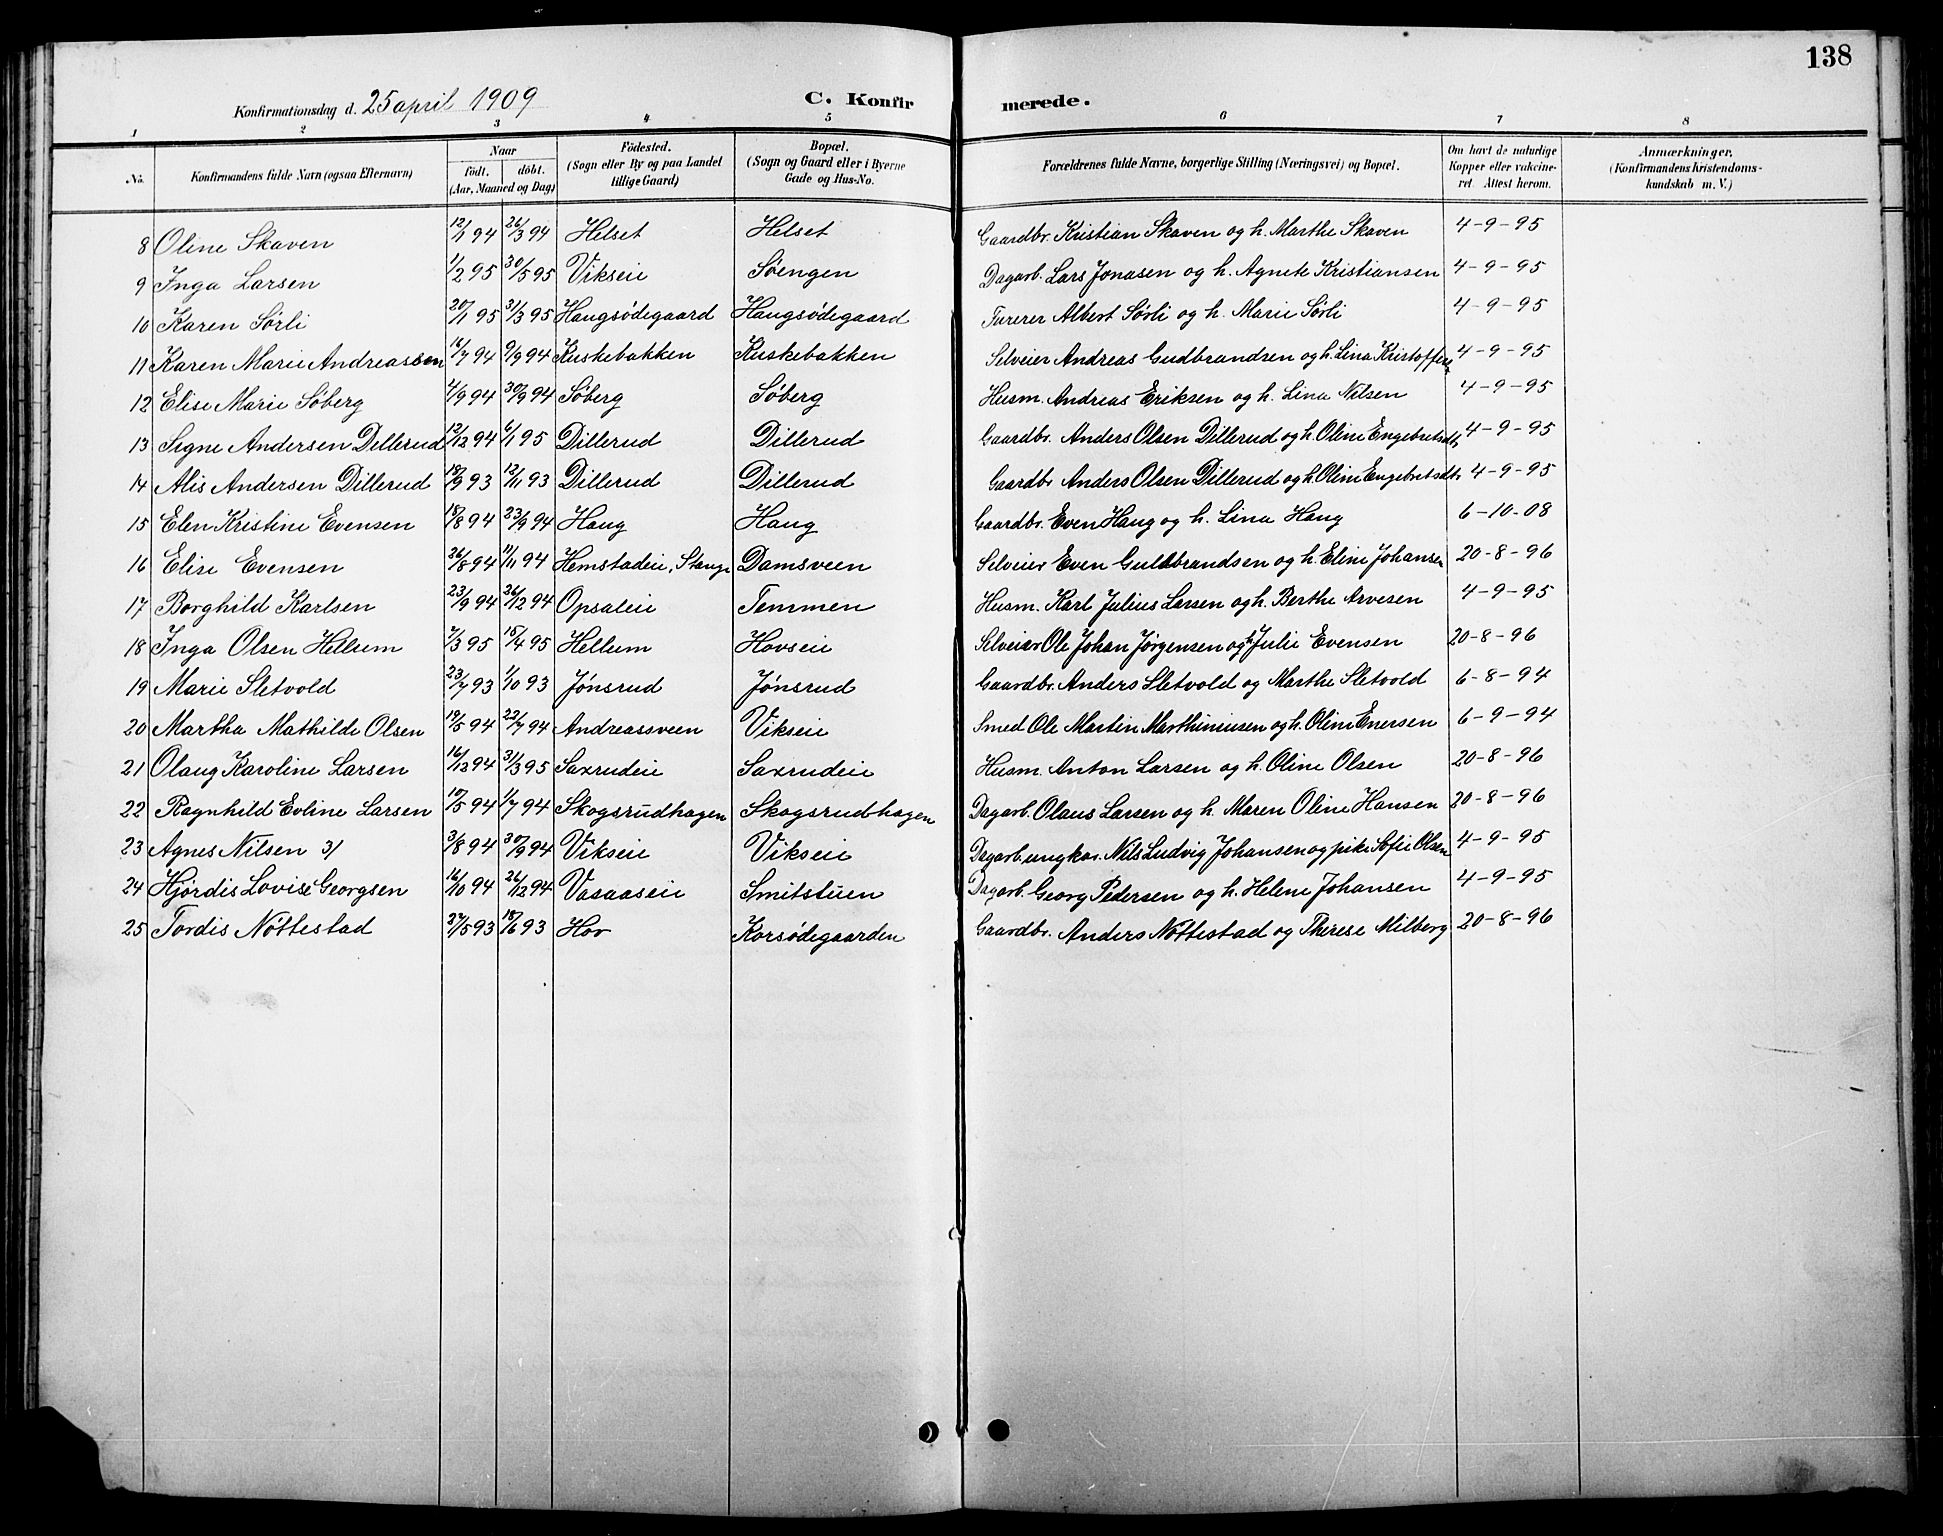 138
Konfirmationsdag d. 25 april 1909 C. Konfirmerede.
1 2 3 4 5 6 7 8
No. Konfirmandens fulde Navn (ogsaa Efternavn) Naar födt. döbt. (Aar, Maaned og Dag) Födested. (Sogn eller By og paa Landet tillige Gaard) Bopæl. (Sogn og Gaard eller i Byerne Gade og Hus-No. Forældrenes fulde Navne, borgerlige Stilling (Næringsvei) og Bopæl. Om havt de naturlige Kopper eller vakcineret. Attest herom. Anmærkninger, (Konfirmandens Kristendomskundskab m. V.)
8 Oline Skaven 12/1 94 26/3 94 Helset Helset Gaardbr. Kristian Skaven og h. Marthe Skaven 4-9-95
9 Inga Larsen 1/2 95 30/5 95 Vikseie Soengen Dagarb. Lars Jonasen og h. Agnete Kristiansen 4-9-95
10 Karen Sørli 20/1 95 31/3 95 Haugsødegaard Haugsødegaard Albert Sørli og h. Marie Sørli 4-9-95
11 Karen Marie Andreassen 16/7 94 9/9 94 Kuskebakken Kuskebakken Selveier Andreas Gudbrandsen og h. Lina Kristoffers 4-9-95
12 Elise Marie Söberg 4/9 94 30/9 94 Söberg Söberg Husm. Andreas Eriksen og h. Lina Nilsen 4-9-95
13 Signe Andersen Dillerud 12/12 94 6/1 95 Dillerud Dillerud Gaardbr. Anders Olsen Dillerud og h. Oline Engebretsdt. 4-9-95
14 Alis Andersen Dillerud 18/9 93 12/11 93 Dillerud Dillerud Gaardbr. Anders Olsen Dillerud og h. Oline Engebretsdt. 4-9-95
15 Elen Kristine Evensen 18/8 94 23/9 94 Haug Haug Gaardbr. Even Haug og h. Lina Haug 6-10-08
16 Elise Evensen 26/8 94 11/11 94 Hemstadeie, Stange Damsveen Selveier Even Guldbrandsen og h. Eline Johansen 20-8-96
17 Borghild Karlsen 23/9 94 26/12 94 Opsaleie Temmen Husm. Karl Julius Larsen og h. Berthe Arvesen 4-9-95
18 Inga Olsen Hellum 7/3 95 15/4 95 Hellum Hovseie Selveier Ole Johan Jørgensen og h. Julie Evensen 20-8-96
19 Marie Sletvold 23/7 93 1/10 93 Jønsrud Jønsrud Gaardbr. Anders Sletvold og Marthe Sletvold 6-8-94
20 Martha Mathilde Olsen 19/5 94 22/7 94 Andreassveen Vikseie Smed Ole Martin Marthiniusen og h. Oline Enersen 6-9-94
21 Olaug Karoline Larsen 16/12 94 31/3 95 Saxrudeie Saxrudeie Husm. Anton Larsen og h. Oline Olsen 20-8-96
22 Ragnhild Evline Larsen 10/5 94 1/7 94 Skogsrudhagen Skogsrudhagen Dagarb. Olaus Larsen og h. Maren Oline Hansen 20-8-96
23 Agnes Nilsen 3/ 3/8 94 30/9 94 Vikseie Vikseie Dagarb. ungkar. Nils Ludvig Johansen og pike Sofie Olsen 4-9-95
24 Hjördis Lovise Georgsen 16/10 94 26/12 94 Vasaaseie Smitstuen Dagarb. Georg Pedersen og h. Helene Johansen 4-9-95
25 Tordis Nöttestad 27/5 93 18/6 93 Hov Korsödegaarden Gaardbr. Anders Nöttestad og Therese Milberg 20-8-96